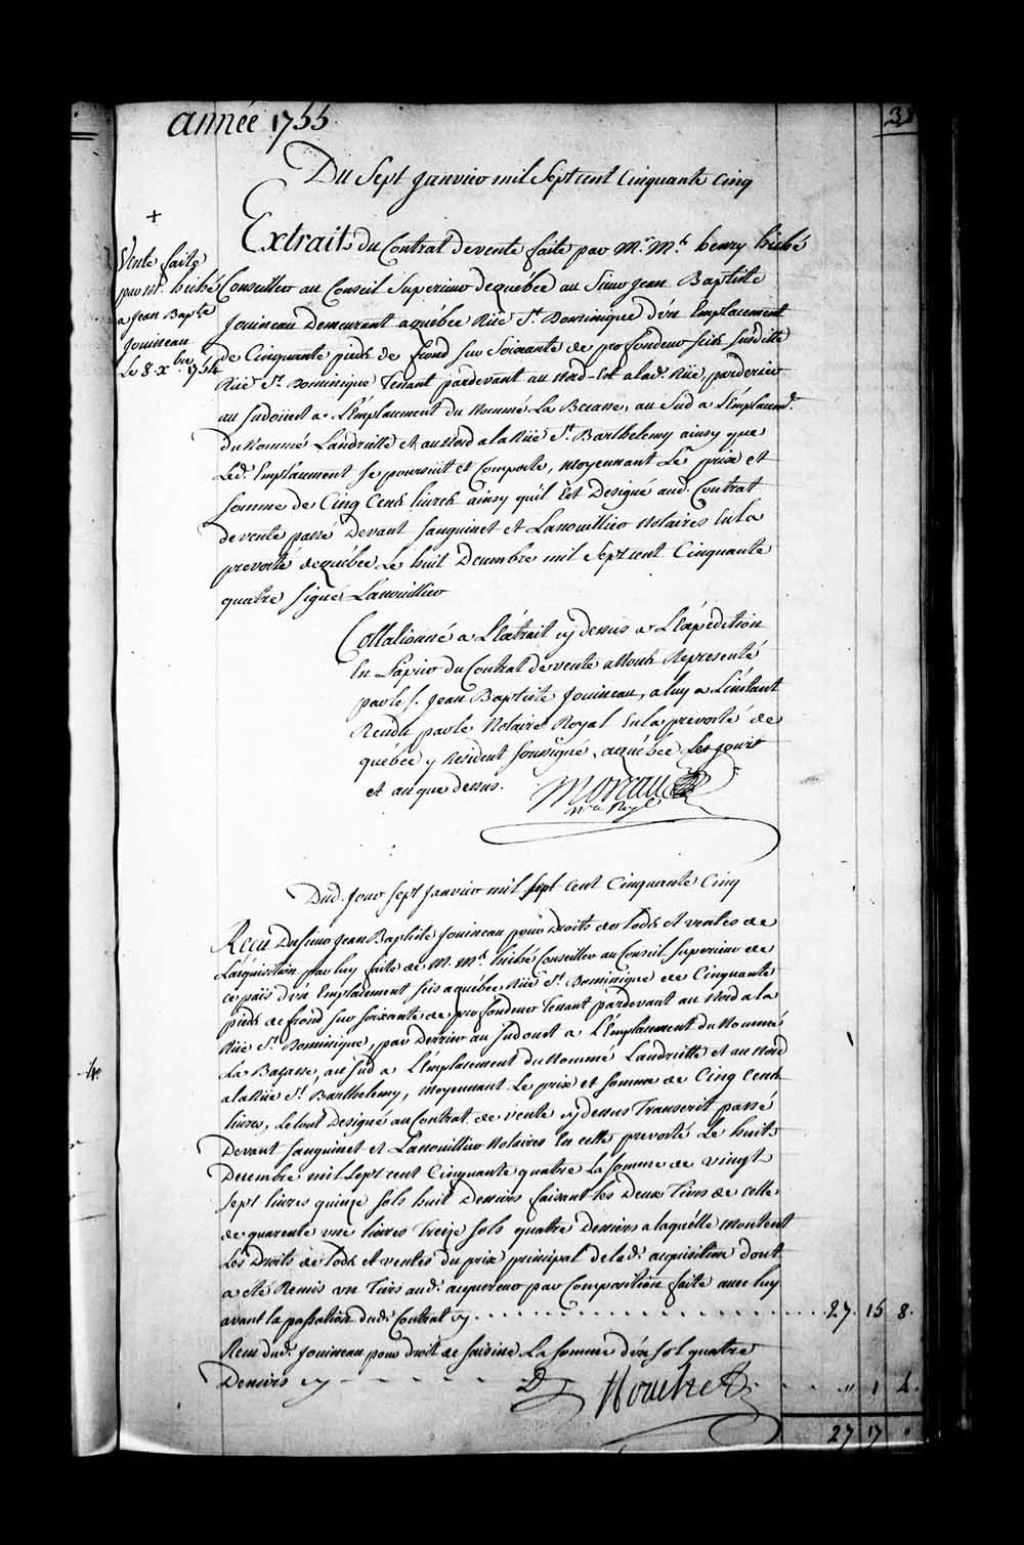 année 1755
Du Sept Janvier mil Sept cent Cinquante Cinq
+
Vente faite
par Mr. hiché
a Jean Bapte
Jouineau
Le 8. Xbre 1754
Extrait du Contrat de vente faite par Mr. Me. henry hiché
Conseiller au Conseil Superieur de québec au Sieur Jean Baptiste
Jouineau Demeurant a québec Rüe St. Dominique d'un Emplacement
de Cinquante pieds de frond sur Soixante de profondeur Scis Susdite
Rüe St. Dominique Tenant pardevant au Nord-Est a lad. Rüe, parderier
au Sudoüest a L'Emplacement du Nommé La Becasse, au Sud a L'Emplacemt.
Du Nommé Landriette et au Nord a la Rüe St. Barthelemy ainsy que
Led. Emplacement Se poursuit et Comporte, moyennant Le prix et
Somme de Cinq Cents livres ainsy qu'il Est Designé aud. Contrat
de vente passé Devant Sanguinet et Lanouillier Notaires En la
prevosté de québec Le huit Decembre mil Sept cent Cinquante
quatre Signé Lanouillier
Collationné a L'Extrait cy dessus a L'Expedition
En papier du Contrat de vente a Nous Representé
par le S. Jean Baptiste Jouineau, a luy a L'instant
Rendu par le Notaire Royal En la prevosté de
québec y Resident Soussigné, a québec Les jour
et an que dessus.
Moreau
Nre. Royl
Dud. Jour Sept Janvier mil Sept cent Cinquante Cinq
Reçu Du Sieur Jean Baptiste Jouineau pour Droits de lods et ventes de
L'acquisition par luy faite de M. Me. hiché Conseiller au Conseil Superieur de
ce païs d'un Emplacement Scis a québec Rüe St. Dominique de Cinquante
pieds de frond sur Soixante de profondeur Tenant pardevant au Nord a la
Rüe St. Dominique, par Derrier au Sudouest a L'Emplacement du Nommé
La Bazasse, au Sud a L'Emplacement du Nommé Landriette et au Nord
a la Rüe St. Barthelemy, moyennant Le prix et Somme de Cinq Cents
livres, Le tout Designé au Contrat de vente cy dessus Transcrit passé
Devant Sanguinet et Lanouillier Notaires En cette prevosté Le huit
Decembre mil Sept cent Cinquante quatre La Somme de vingt
Sept livres quinze Sols huit Deniers faisant les Deux Tiers de celle
de quarente une livres Treize Sols quatre Deniers a laquelle montent
Les Droits de lods et ventes du prix principal de lad. acquisition dont
a été Remis un Tiers aud. acquereur par Composition faite avec luy
avant la passation dud. Contrat cy . . . . . 27. 15 8.
Reçu dud. Jouineau pour droit de Saisine La Somme d'un Sol quatre
Deniers cy - - - - - " 1 4.
27 17 "